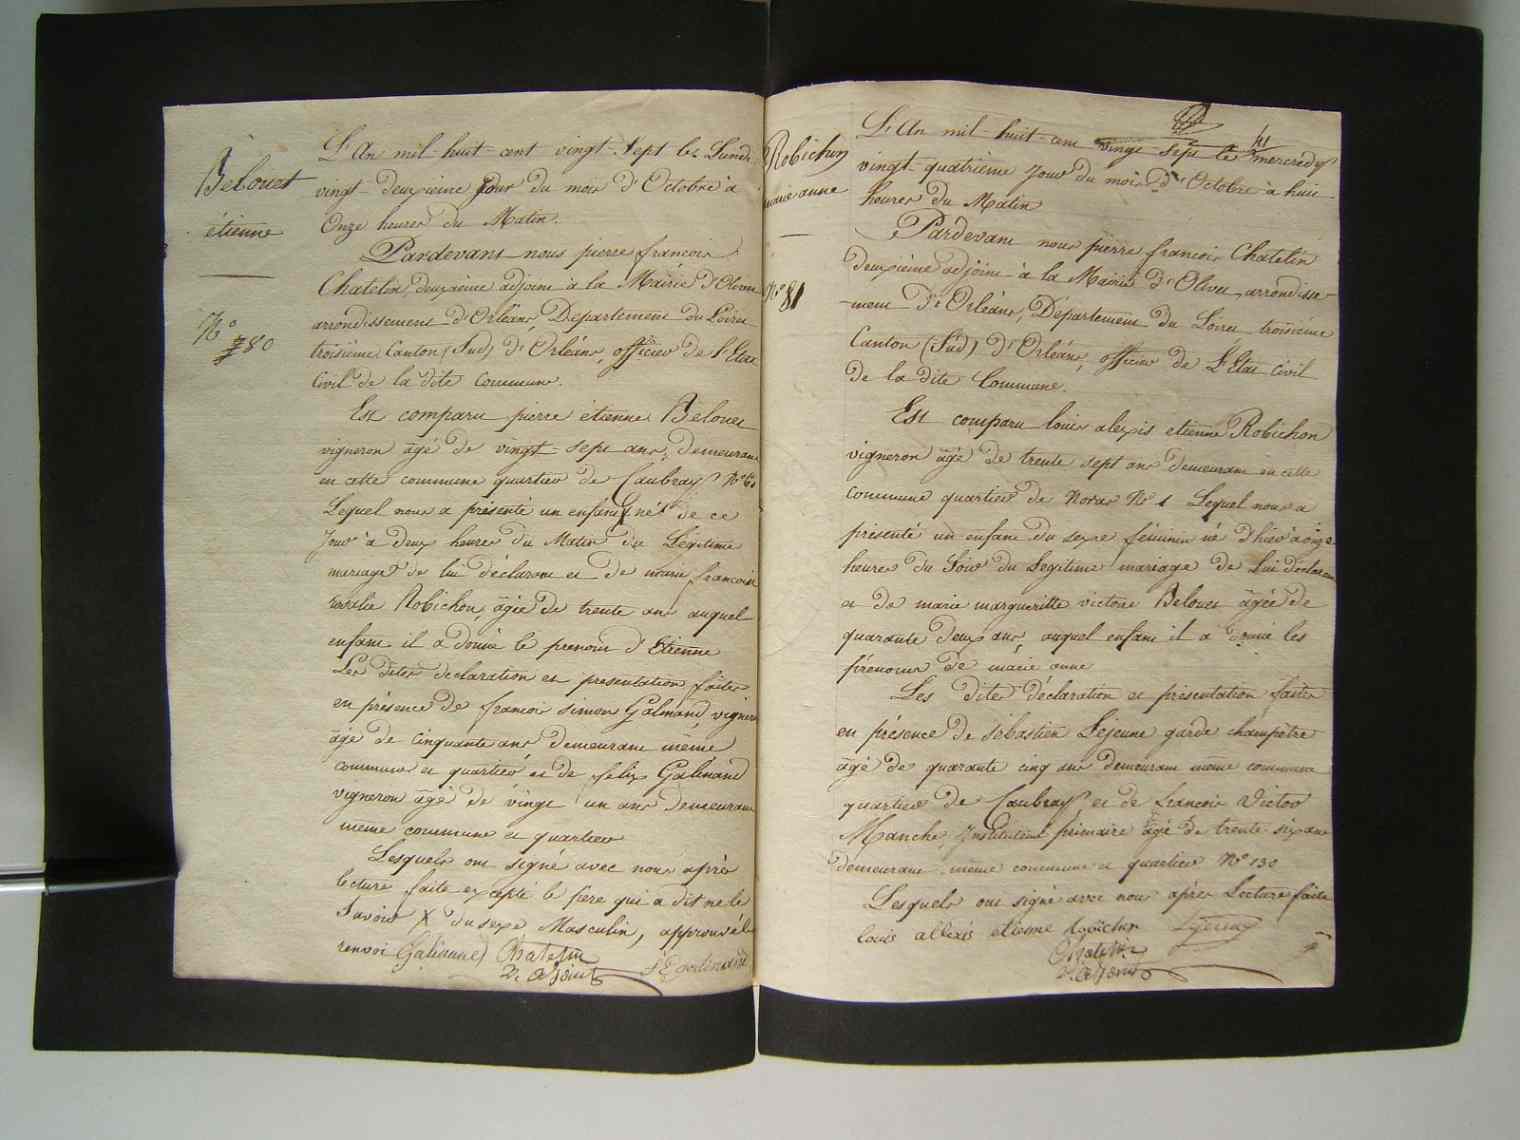 Belouet
étienne
N° 80
L'An mil-huit-cent vingt-Sept le Lundi
vingt-deuxième Jour du mois d'Octobre à
Onze heures du Matin.
Pardevant nous pierre françois
Chatelin, deuxième adjoint à la Mairie d'Olivet
arrondissement d'Orléans, Département du Loiret
troisième Canton (Sud) d'Orléans, officier de l'Etat
Civil de la dite Commune.
Est comparu pierre étienne Belouet
vigneron âgé de vingt-sept ans, demeurant
en cette commune quartier de Caubray N°
Lequel nous a présenté un enfant X né de ce
Jour à deux heures du Matin du Légitime
mariage de lui déclarant et de marie françoise
Robichon, âgée de trente ans auquel
enfant il a donné le prenom d'Etienne
Les dites déclaration et presentation faites
en présence de françois simon Galinand, vigneron
âgé de cinquante ans demeurant même
commune et quartier et de felix Galinand
vigneron âgé de vingt un ans demeurant
même commune et quartier
Lesquels ont signé avec nous après
lecture faite excepté le père qui a dit ne le
Savoir X du sexe Masculin, approuvé le
renvoi Galinand Chatelin F Galinand
2e adjoint
Robichon
marie anne
N° 81
41
L'An mil-huit-cent vingt-sept le mercredy
vingt-quatrième Jour du mois d'Octobre à huit
heures du Matin
Pardevant nous pierre françois Chatelin
deuxième adjoint à la Mairie d'Olivet, arrondisse-
-ment d'Orléans, Département du Loiret troisième
Canton (Sud) d'Orléans, officier de L'Etat civil
de la dite Commune.
Est comparu louis alexis etienne Robichon
vigneron âgé de trente sept ans demeurant en cette
commune quartier de Noras N° 1 Lequel nous a
présenté un enfant du sexe féminin né d'hier à onze
heures du Soir du Legitime mariage de Lui déclarant
et de marie margueritte victoire Belouet âgée de
quarante deux ans, auquel enfant il a donné les
prénoms de marie anne
Les dites déclaration et présentation faites
en présence de sébastien Lejeune garde champêtre
âgé de quarante cinq ans demeurant même commune
quartier de Caubray et de françois Victor
Manche, Instituteur primaire âgé de trente-six ans
demeurant même commune et quartier N° 130
Lesquels ont signé avec nous après Lecture faite
louis allexis etienne robichon Lejeune
Chatelin
2e adjoint